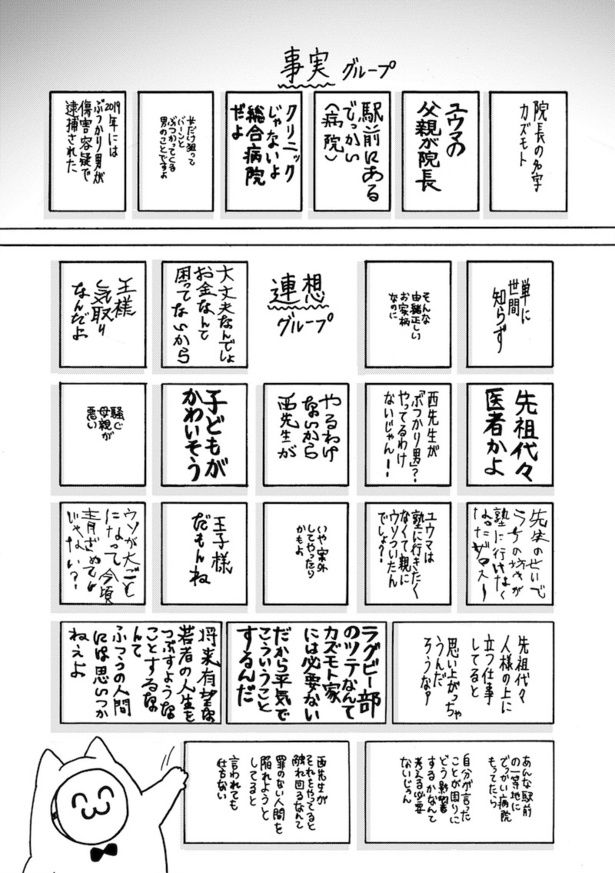 事実グループ
院長の名字
カズモト
ユウマの
父親が院長
駅前にある
でっかい
(病院)
クリニック
じゃないよ
総合病院
だよ
女だけ狙って
バーンと
ぶつかってくる
男のことですよ
2019年には
ぶつかり男が
傷害容疑で
逮捕された
連想
グループ
単に
世間
知らず
そんな
由緒正しい
お家柄
なのに
大丈夫なんでしょ
お金なんて
困ってないから
王様
気取り
なんだよ
先祖代々
医者かよ
西先生が
「ぶつかり男」?
やってるわけ
ないじゃんー!
やるわけ
ないから
西先生が
子どもが
かわいそう
騒ぐ
母親が
悪い
先生のせいで
うちの坊さが
塾に行けなく
なったザマスー!
ユウマは
塾に行きたく
なくて親に
ウソついたん
でしょ?
いや案外
してやったり
かもよ
王子様
だもんね
ウソが大ごと
になって今頃
青ざめてん
じゃない?
先祖代々
人様の上に
立つ仕事
してると
思い上がっちゃ
うんだ
ろうな?
ラグビー部
のツテなんて
カズモト家
には必要ない
だから平気で
こういうこと
するんだ
将来有望な
若者の人生を
つぶすような
ことするな
んて
ふつうの人間
には思いつか
ねえよ
あんな駅前
の一等地に
でっかい病院
もってたら
自分が言った
ことが困りに
どう影響
するかなんて
考える必要
ないじゃん
西先生が
それをやってると
触れ回るなんて
罪のない人間を
陥れようと
してると
言われても
仕方ない